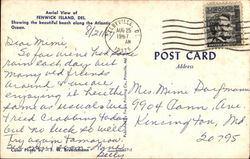 Aerial View of
FENWICK ISLAND, DEL.
Showing the beautiful beach along the Atlantic
Ocean.
8/24
Dear Mimi,
So far we've had some
rain each day but
many old friends
around & we are
enjoying it here
same as usual.
Tried crabbing today
but no luck so well
try again tomorrow.
Betty
AUG 25
1967
AM
POST CARD
Address
Mrs. Mime
9904 Conn. Ave.
Kensington, Md.
20795